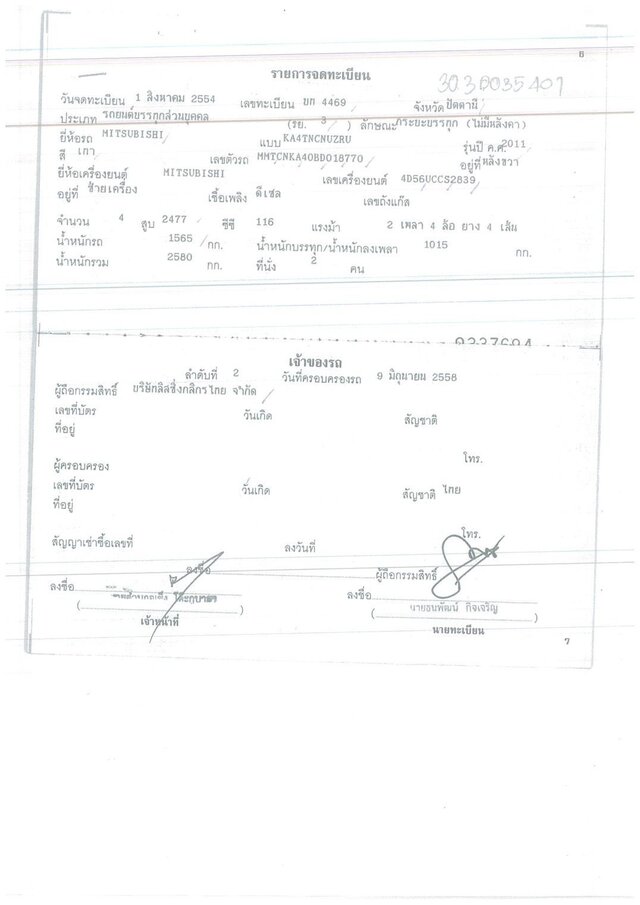 6
รายการจดทะเบียน
3030035401
วันจดทะเบียน 1 สิงหาคม 2554 เลขทะเบียน บท 4469 จังหวัด ปัตตานี
ประเภท รถยนต์บรรทุกส่วนบุคคล (รย. 3 ) ลักษณะ กระบะบรรทุก (ไม่มีหลังคา)
ยี่ห้อรถ MITSUBISHI แบบ KA4TNCNUZRU รุ่นปี ค.ศ. 2011
สี เทา เลขตัวรถ MMTCNKA40BD018770 อยู่ที่ หลังขวา
ยี่ห้อเครื่องยนต์ MITSUBISHI เลขเครื่องยนต์ 4D56UCCS2839
อยู่ที่ ซ้ายเครื่อง เชื้อเพลิง ดีเซล เลขถังแก๊ส
จำนวน 4 สูบ 2477 ซีซี 116 แรงม้า 2 เพลา 4 ล้อ ยาง 4 เส้น
น้ำหนักรถ 1565 กก. น้ำหนักบรรทุก/น้ำหนักลงเพลา 1015 กก.
น้ำหนักรวม 2580 กก. ที่นั่ง 2 คน
เจ้าของรถ
ลำดับที่ 2 วันที่ครอบครองรถ 9 มิถุนายน 2558
ผู้ถือกรรมสิทธิ์ บริษัทลิสซิ่งกสิกรไทย จำกัด
เลขที่บัตร วันเกิด สัญชาติ
ที่อยู่
โทร.
ผู้ครอบครอง
เลขที่บัตร วันเกิด สัญชาติ ไทย
ที่อยู่
โทร.
สัญญาเช่าซื้อเลขที่ ลงวันที่
ลงชื่อ ผู้ถือกรรมสิทธิ์
ลงชื่อ ลงชื่อ
( ) ( นายธนพัฒน์ กิจเจริญ )
เจ้าหน้าที่ นายทะเบียน
7